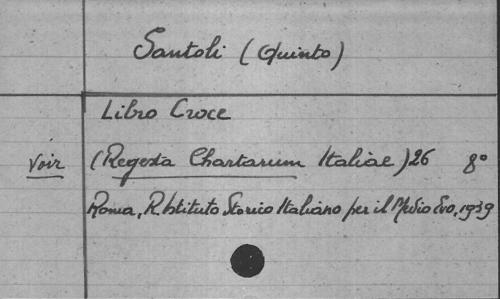 Santoli (Quinto)
Libro Croce
Voir (Regesta Chartarum Italiae) 26 8°
Roma, R. Istituto Storico Italiano per il Medio Evo, 1939